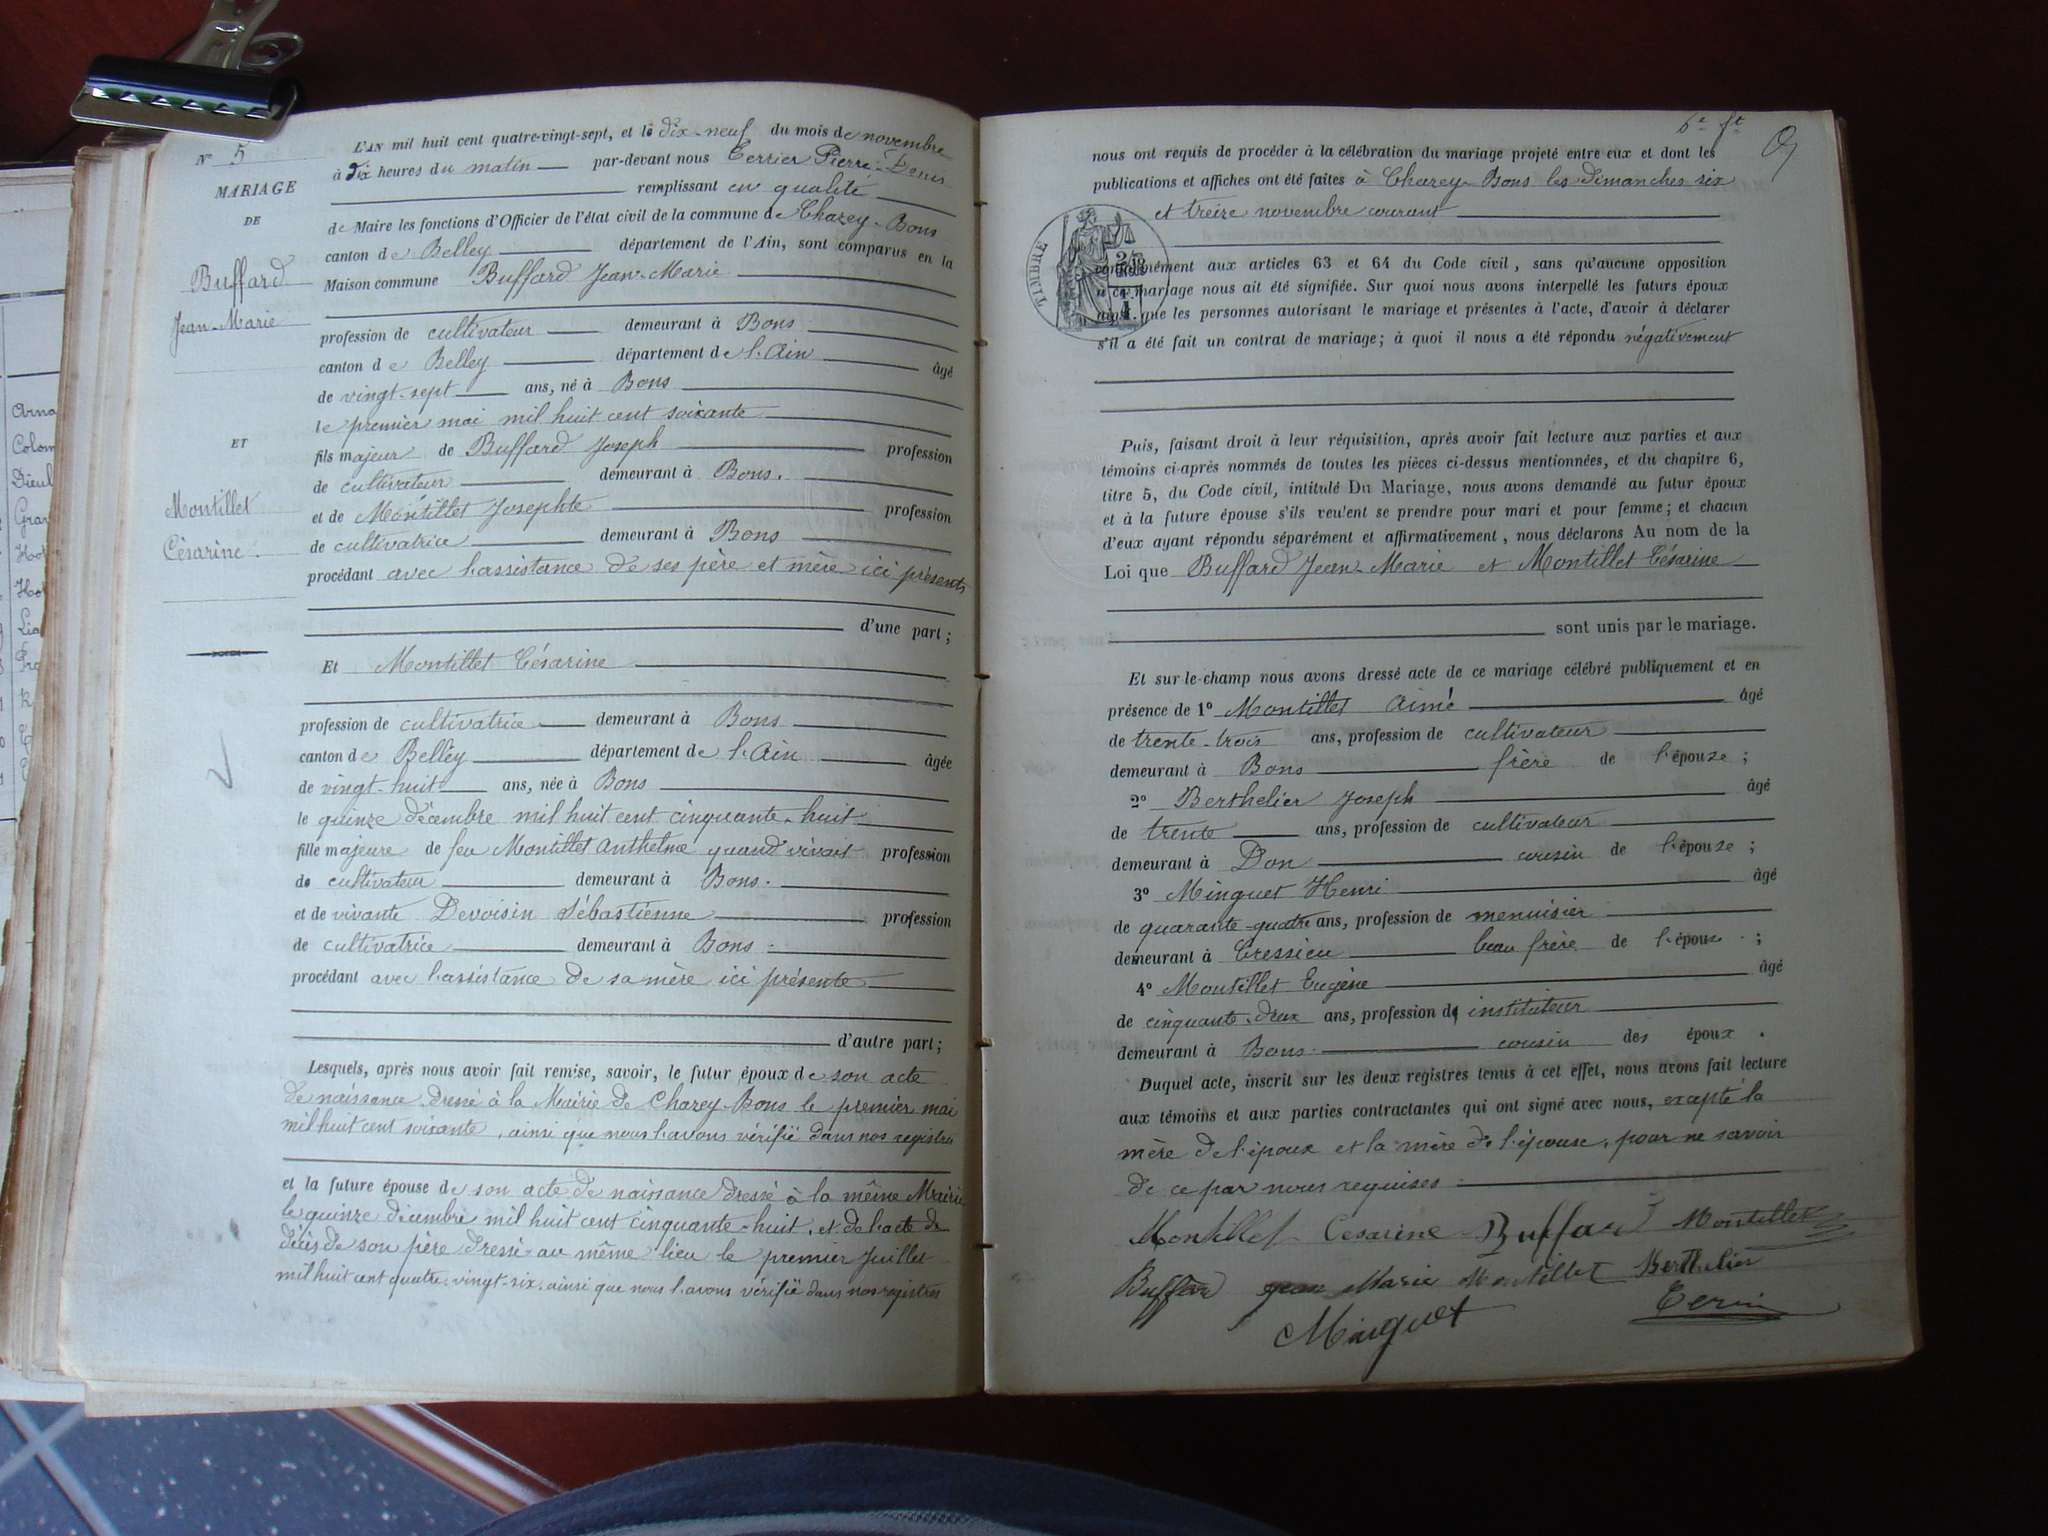 N° 5
MARIAGE
DE
Buffard
Jean-Marie
ET
Montillet
Césarine.
L'AN mil huit cent quatre-vingt-sept, et le dix-neuf du mois de novembre
à dix heures du matin par-devant nous Terrier Pierre-Denis
remplissant en qualité
de Maire les fonctions d'Officier de l'état civil de la commune de Chazey-Bons
canton de Belley département de l'Ain, sont comparus en la
Maison commune Buffard Jean-Marie
profession de cultivateur demeurant à Bons
canton de Belley département de l'Ain âgé
de vingt-sept ans, né à Bons
le premier mai mil huit cent soixante
fils majeur de Buffard Joseph profession
de cultivateur demeurant à Bons.
et de Montillet Josephte profession
de cultivatrice demeurant à Bons
procédant avec l'assistance de ses père et mère ici présents
d'une part;
Et Montillet Césarine
profession de cultivatrice demeurant à Bons
canton de Belley département de l'Ain âgée
de vingt-huit ans, née à Bons
le quinze décembre mil huit cent cinquante-huit
fille majeure de feu Montillet Anthelme quand vivait profession
de cultivateur demeurant à Bons.
et de vivante Devoisin Sébastienne profession
de cultivatrice demeurant à Bons
procédant avec l'assistance de sa mère ici présente
d'autre part;
Lesquels, après nous avoir fait remise, savoir, le futur époux de son acte
de naissance dressé à la Mairie de Chazey-Bons le premier mai
mil huit cent soixante, ainsi que nous l'avons vérifié dans nos registres
et la future épouse de son acte de naissance dressé à la même Mairie
le quinze décembre mil huit cent cinquante-huit, et de l'acte de
décès de son père dressé au même lieu le premier Juillet
mil huit cent quatre-vingt-six, ainsi que nous l'avons vérifié dans nos registres
6e ft
nous ont requis de procéder à la célébration du mariage projeté entre eux et dont les
publications et affiches ont été faites à Chazey-Bons les dimanches six
et treize novembre courant
TIMBRE
conformément aux articles 63 et 64 du Code civil, sans qu'aucune opposition
à ce mariage nous ait été signifiée. Sur quoi nous avons interpellé les futurs époux
ainsi que les personnes autorisant le mariage et présentes à l'acte, d'avoir à déclarer
s'il a été fait un contrat de mariage; à quoi il nous a été répondu négativement
Puis, faisant droit à leur réquisition, après avoir fait lecture aux parties et aux
témoins ci-après nommés de toutes les pièces ci-dessus mentionnées, et du chapitre 6,
titre 5, du Code civil, intitulé Du Mariage, nous avons demandé au futur époux
et à la future épouse s'ils veulent se prendre pour mari et pour femme; et chacun
d'eux ayant répondu séparément et affirmativement, nous déclarons Au nom de la
Loi que Buffard Jean-Marie et Montillet Césarine
sont unis par le mariage.
Et sur-le-champ nous avons dressé acte de ce mariage célébré publiquement et en
présence de 1° Montillet Aimé âgé
de trente-trois ans, profession de cultivateur
demeurant à Bons frère de l'épouse;
2° Berthelier Joseph âgé
de trente ans, profession de cultivateur
demeurant à Don cousin de l'épouse;
3° Minguet Henri âgé
de quarante-quatre ans, profession de menuisier
demeurant à Cressieu beau frère de l'épouse;
4° Montillet Eugène âgé
de cinquante-deux ans, profession de instituteur
demeurant à Bons cousin des époux.
Duquel acte, inscrit sur les deux registres tenus à cet effet, nous avons fait lecture
aux témoins et aux parties contractantes qui ont signé avec nous, excepté la
mère de l'époux et la mère de l'épouse, pour ne savoir
de ce par nous requises
Montillet Cesarine Buffard Montillet
Buffard jean Marie Montillet Berthelier
Minguet